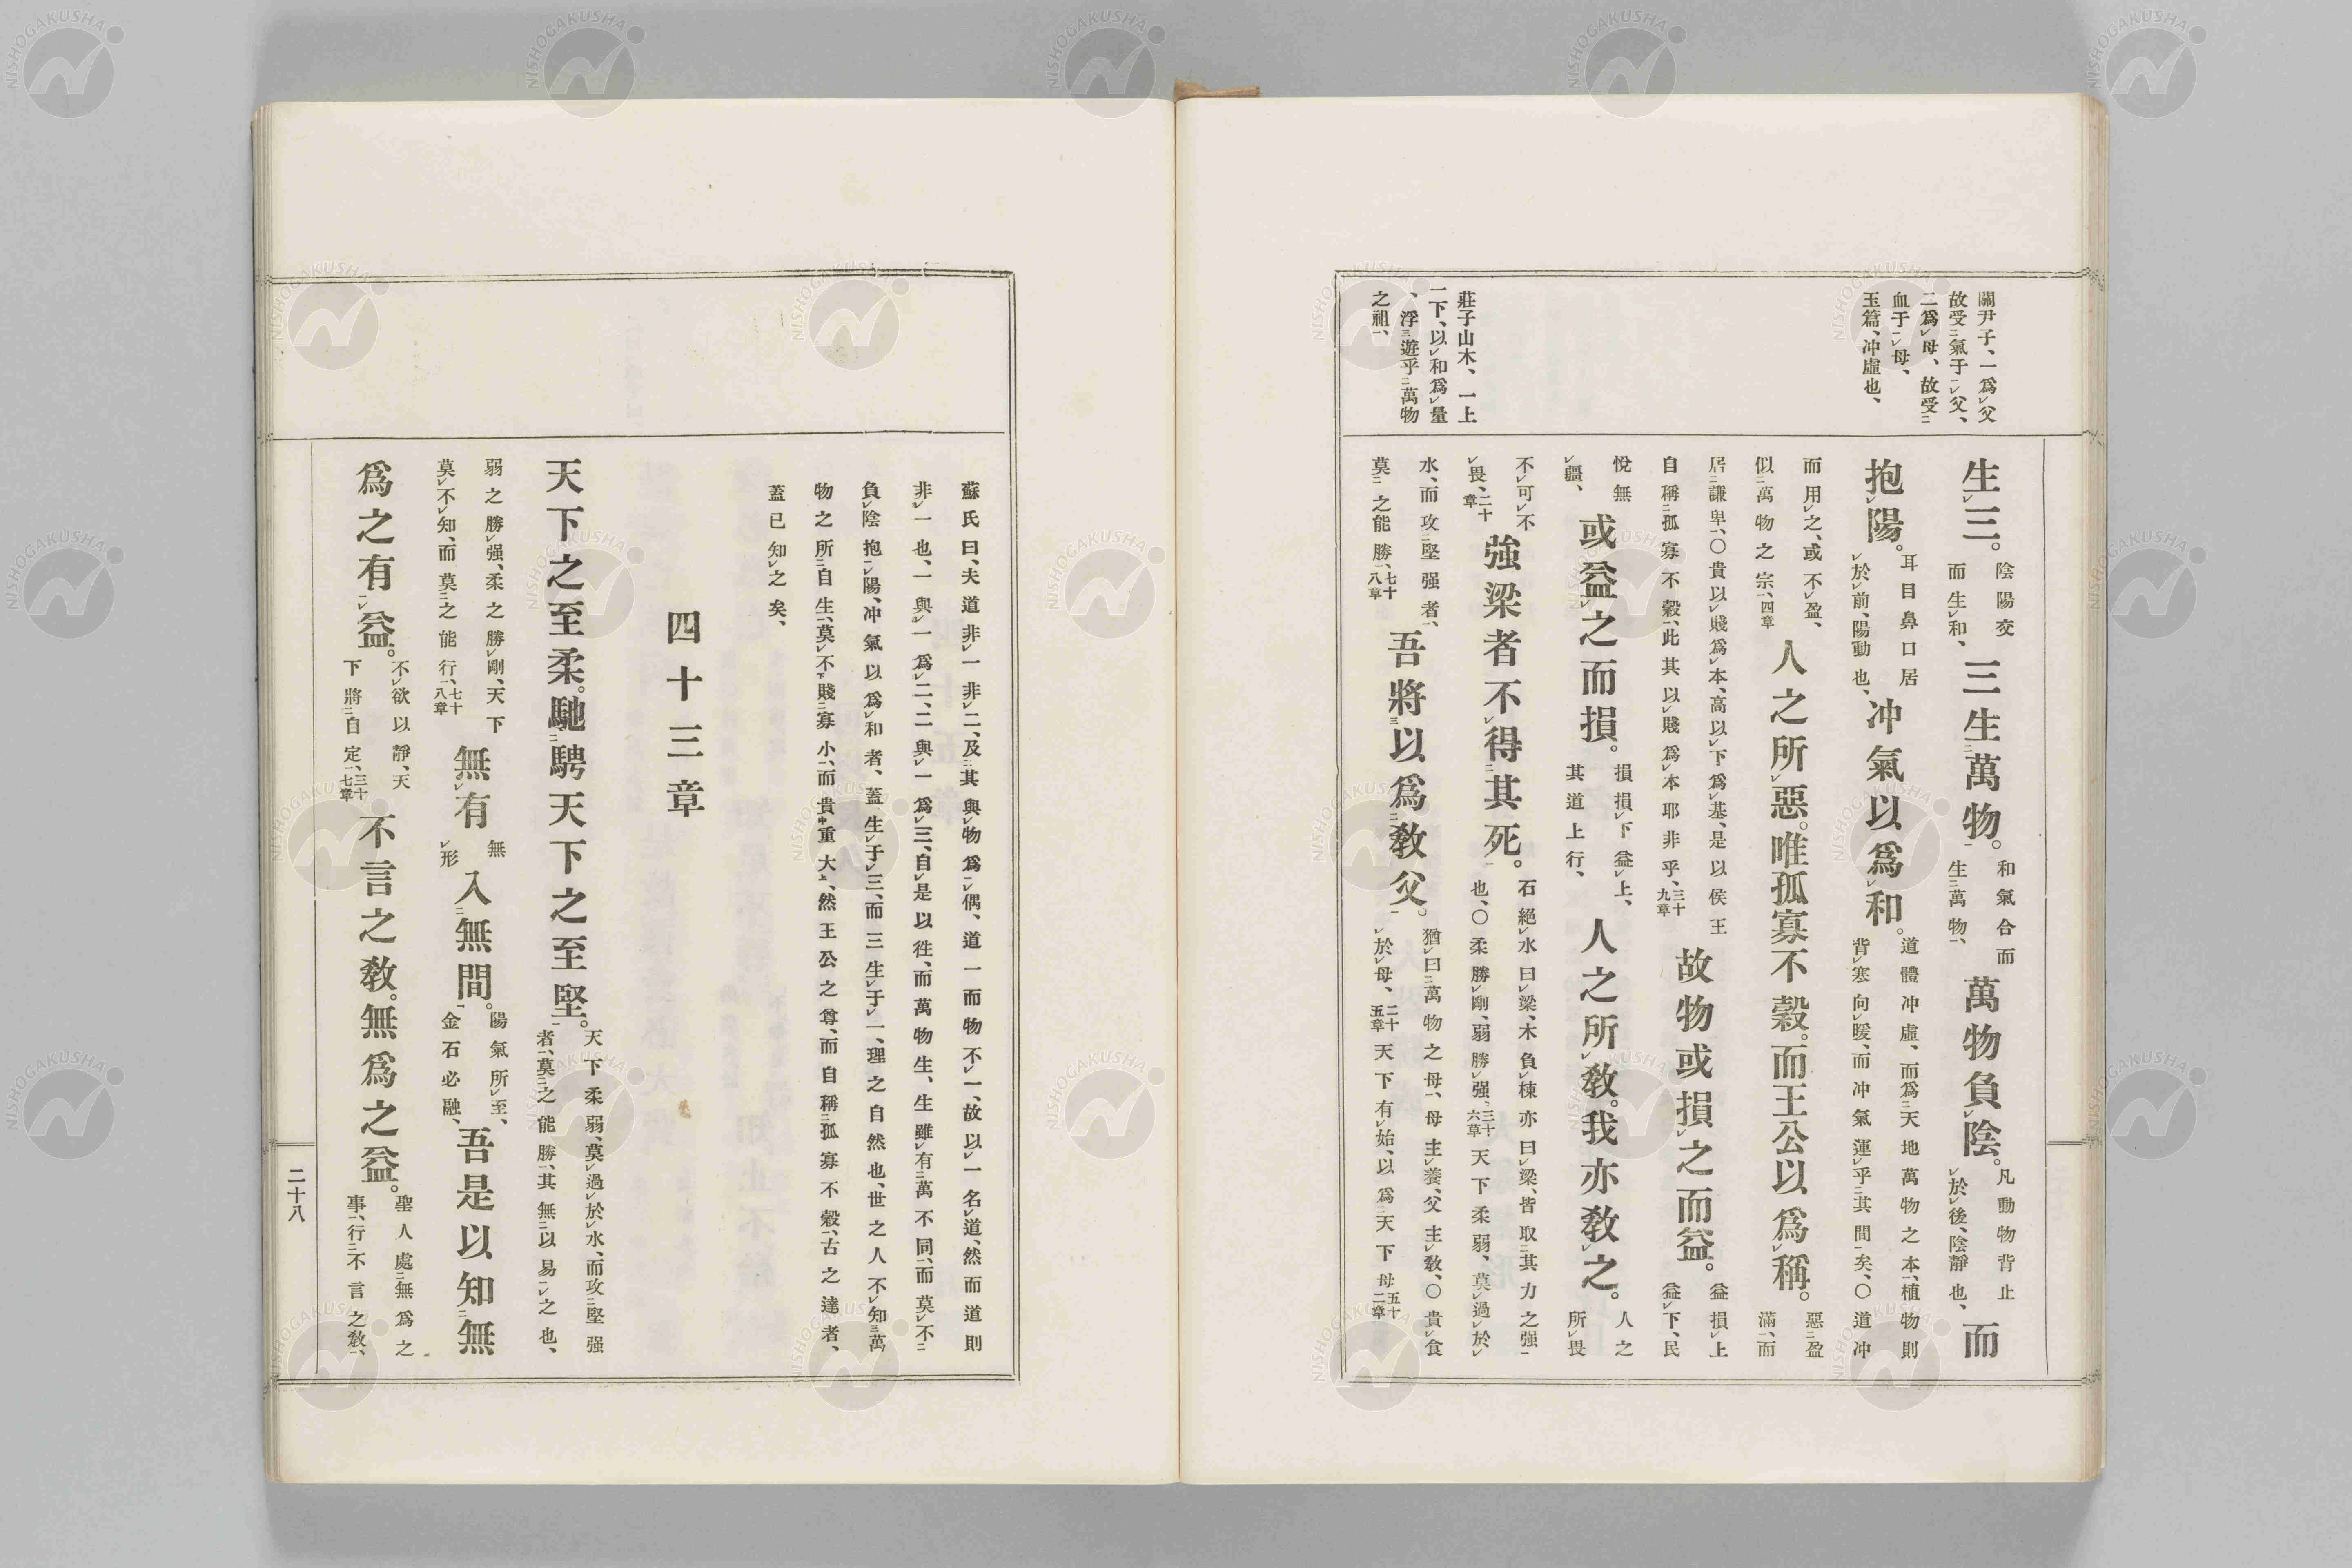 關尹子、一爲父
故受氣于父、
二爲母、故受
血于母、
玉篇、冲虛也、
莊子山木、一上
一下、以和爲量
、浮遊乎萬物
之祖、
生三。陰陽交而生和、三生萬物。和氣合而生萬物、萬物負陰。凡動物背止於後、陰靜也、而
抱陽。耳目鼻口居於前、陽動也、冲氣以爲和。道體冲虛、而爲天地萬物之本、植物則背寒向暖、而冲氣運乎其間矣、〇道冲
而用之、或不盈、似萬物之宗、四章人之所惡。唯孤寡不穀。而王公以爲稱。惡盈滿、而
居謙卑、〇貴以賤爲本、高以下爲基、是以侯王自稱孤寡不穀、此其以賤爲本耶非乎、三十九章故物或損之而益。益損上益下、民
悅無疆、或益之而損。損損下益上、其道上行、人之所教。我亦教之。人之所畏
不可不畏、二十章強梁者不得其死。石絕水曰梁、木負棟亦曰梁、皆取其力之强也、〇柔勝剛、弱勝强、三十六章天下柔弱、莫過於
水、而攻堅强者、莫之能勝、七十八章吾將以爲教父。猶曰萬物之母、母主養、父主教、〇貴食於母、二十五章天下有始、以爲天下母五十二章
蘇氏曰、夫道非一非二、及其與物爲偶、道一而物不一、故以一名道、然而道則
非一也、一與一爲二、二與一爲三、自是以徃、而萬物生、生雖有萬不同、而莫不
負陰抱陽、冲氣以爲和者、蓋生于三、而三生于一、理之自然也、世之人不知萬
物之所自生、莫不賤寡小、而貴重大、然王公之尊、而自稱孤寡不穀、古之達者、
蓋已知之矣、
四十三章
天下之至柔。馳騁天下之至堅。天下柔弱、莫過於水、而攻堅强者、莫之能勝、其無以易之也、
弱之勝强、柔之勝剛、天下莫不知、而莫之能行、七十八章無有無形入無間。陽氣所至、金石必融、吾是以知無
爲之有益。不欲以靜、天下將自定、三十七章不言之教。無爲之益。聖人處無爲之事、行不言之教、
二十八